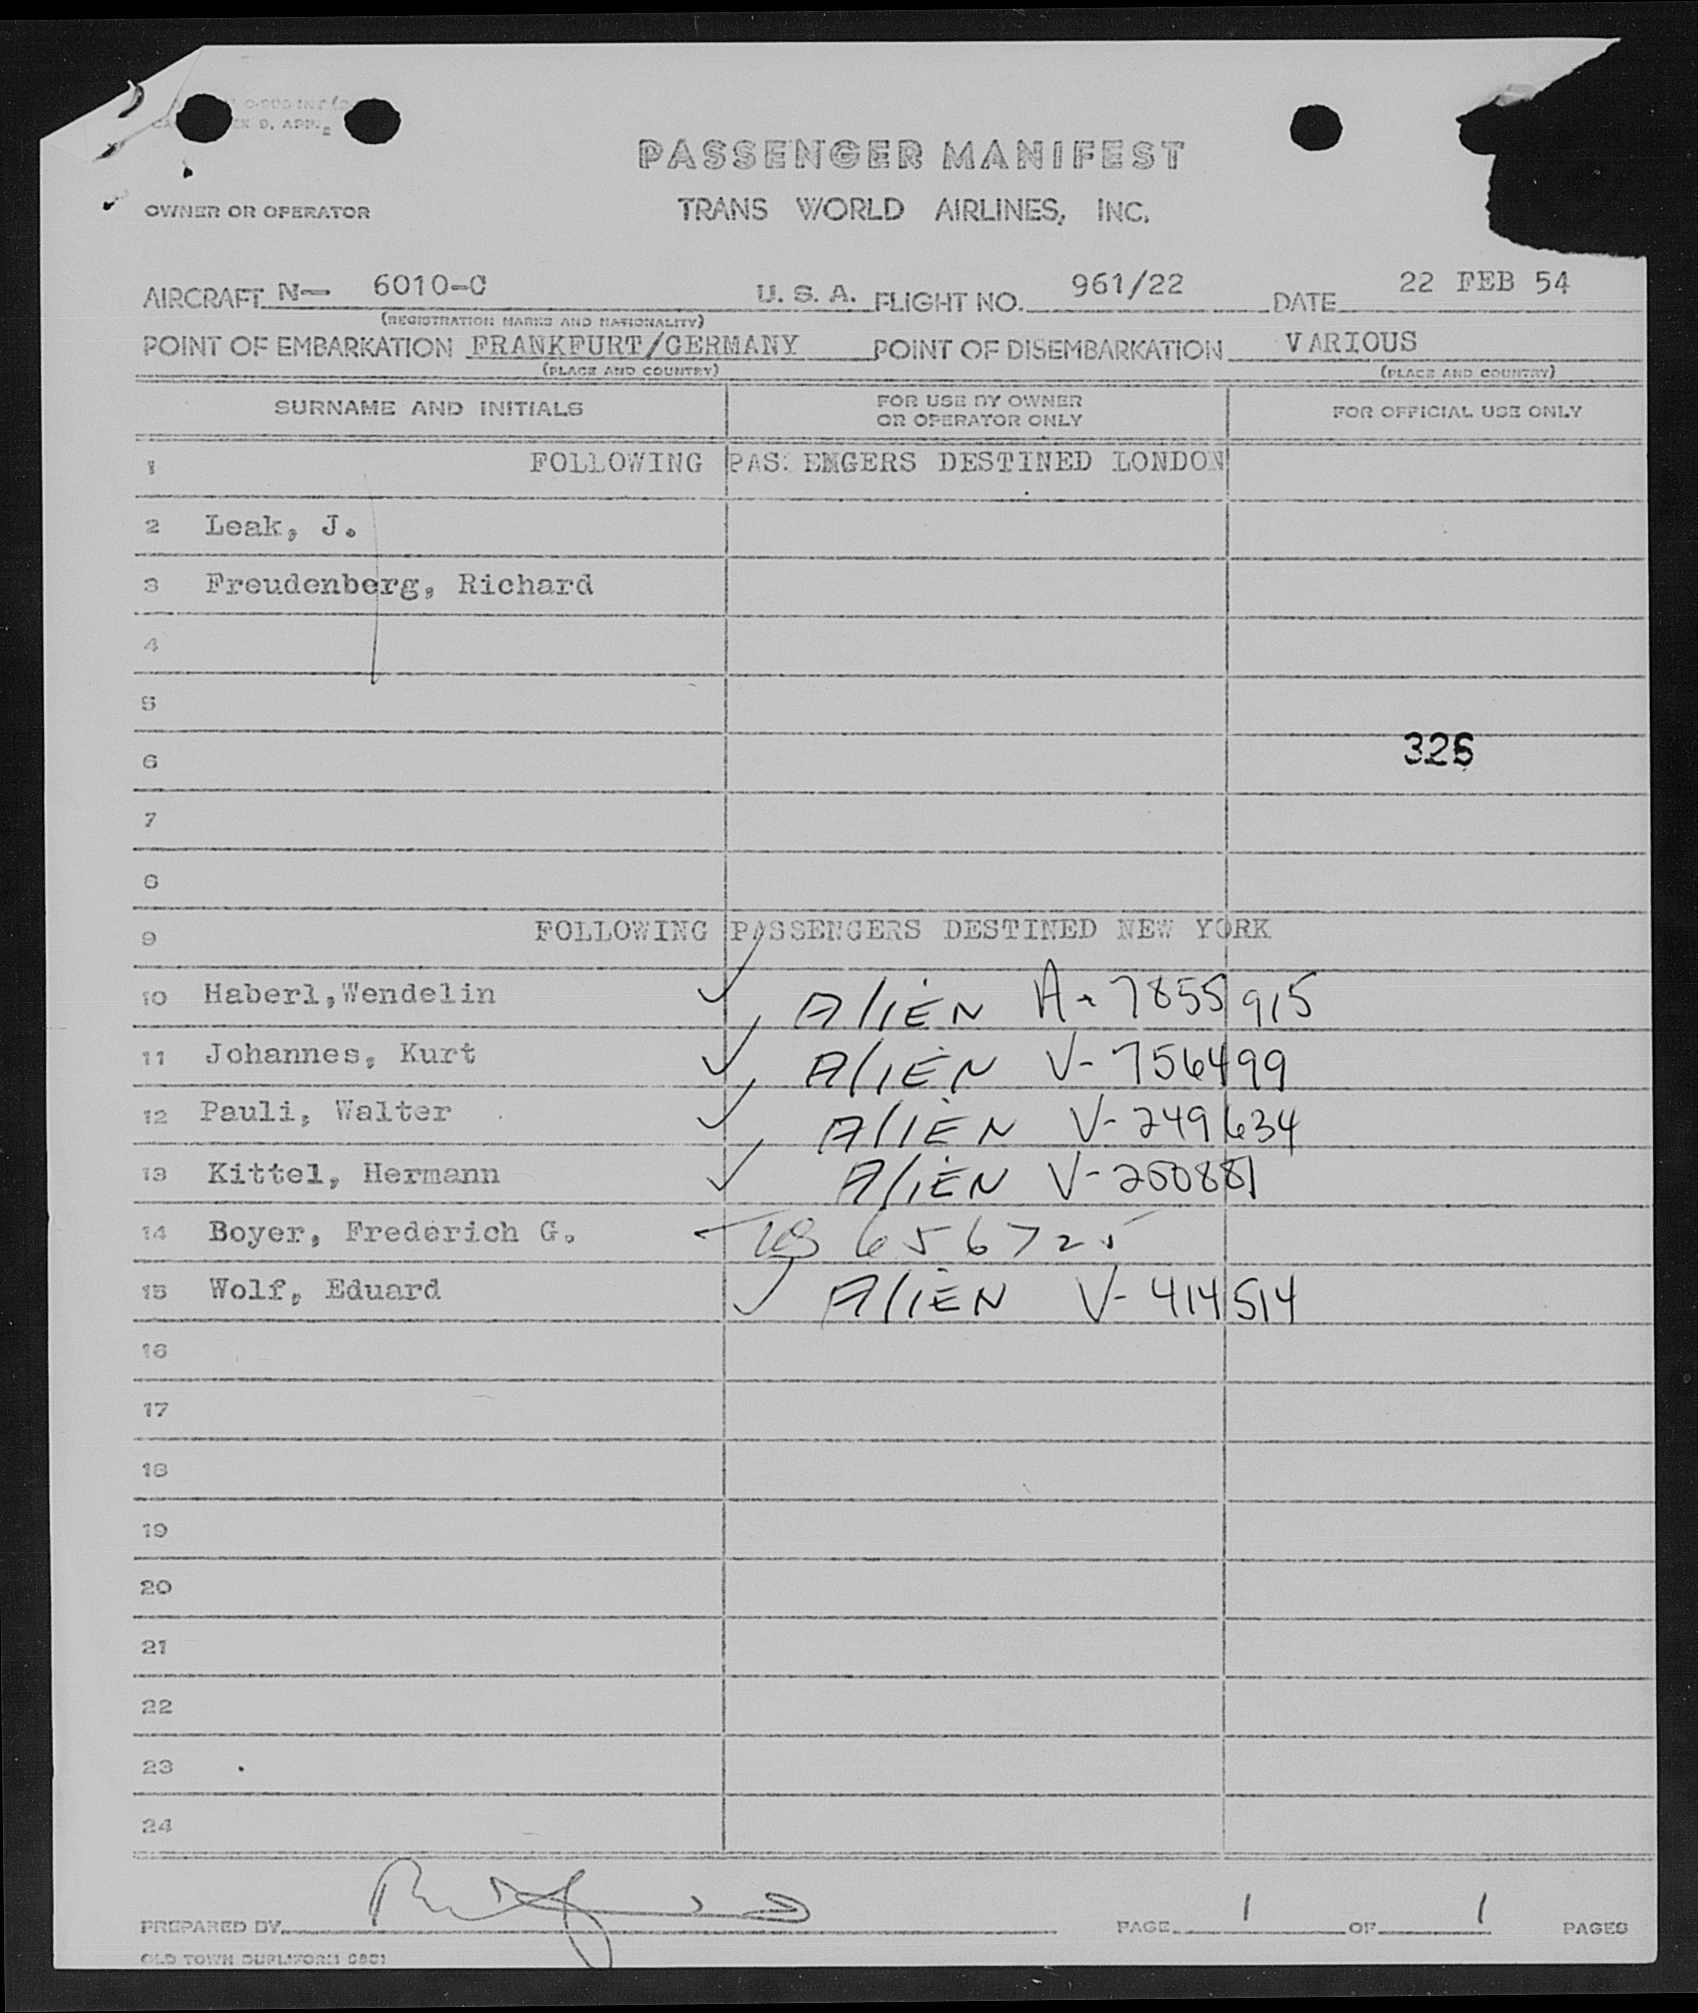 PASSENGER MANIFEST
OWNER OR OPERATOR TRANS WORLD AIRLINES, INC.
AIRCRAFT N— 6010-C U. S. A. FLIGHT NO. 961/22 DATE 22 FEB 54
(REGISTRATION MARKS AND NATIONALITY)
POINT OF EMBARKATION FRANKFURT/GERMANY POINT OF DISEMBARKATION VARIOUS
(PLACE AND COUNTRY) (PLACE AND COUNTRY)
SURNAME AND INITIALS FOR USE BY OWNER OR OPERATOR ONLY FOR OFFICIAL USE ONLY
1 FOLLOWING PAS: ENGERS DESTINED LONDON
2 Leak, J.
3 Freudenberg, Richard
4
5
6 326
7
8
9 FOLLOWING PASSENGERS DESTINED NEW YORK
10 Haberl,Wendelin ✓ ALIEN A-7855915
11 Johannes, Kurt ✓ ALIEN V-756499
12 Pauli, Walter ✓ ALIEN V-249634
13 Kittel, Hermann ✓ ALIEN V-250881
14 Boyer, Frederich G. US 656725
15 Wolf, Eduard ✓ ALIEN V-414514
16
17
18
19
20
21
22
23
24
PREPARED BY PAGE 1 OF 1 PAGES
OLD TOWN DUPLIFORM